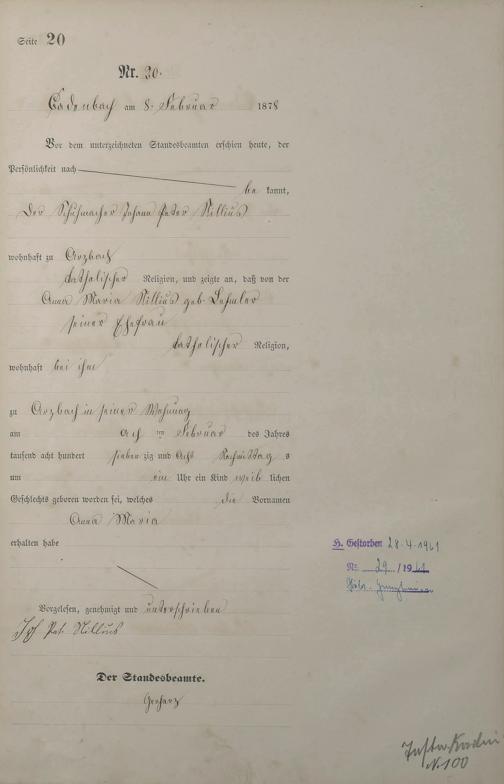 Seite 20
Nr. 20.
Cadenbach am 8. Februar 1878
Vor dem unterzeichneten Standesbeamten erschien heute, der
Persönlichkeit nach
be kannt,
der Schuhmacher Johann Peter Nillius
wohnhaft zu Arzbach
katholischer Religion, und zeigte an, daß von der
Anna Maria Nillius geb. Lehmler
seiner Ehefrau
katholischer Religion,
wohnhaft bei ihm
zu Arzbach in seiner Wohnung
am acht ten Februar des Jahres
tausend acht hundert sieben zig und acht Nachmittag s
um ein Uhr ein Kind weib lichen
Geschlechts geboren worden sei, welches die Vornamen
Anna Maria
erhalten habe
Vorgelesen, genehmigt und unterschrieben
Joh Pet. Nillius
Der Standesbeamte.
H. Gestorben 28.4.1961
Nr. 29 /1961
N. 100